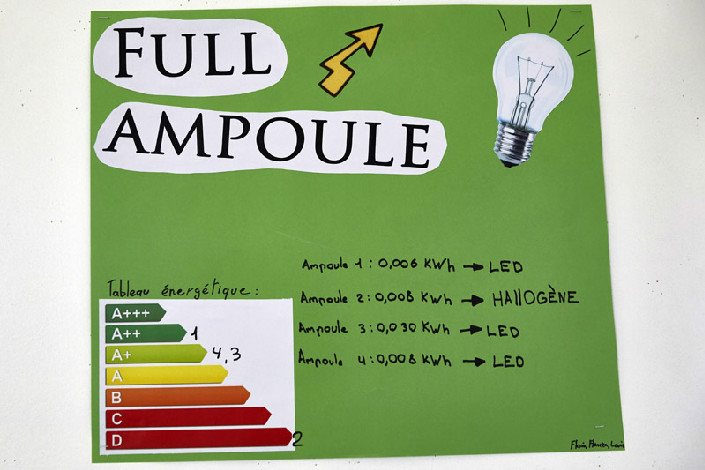 FULL
AMPOULE
Ampoule 1 : 0,006 KWh → LED
Ampoule 2 : 0,008 KWh → HALLOGÈNE
Ampoule 3 : 0,030 KWh → LED
Ampoule 4 : 0,008 KWh → LED
Tableau énergétique :
A+++
A++ 1
A+ 4,3
A
B
C
D 2